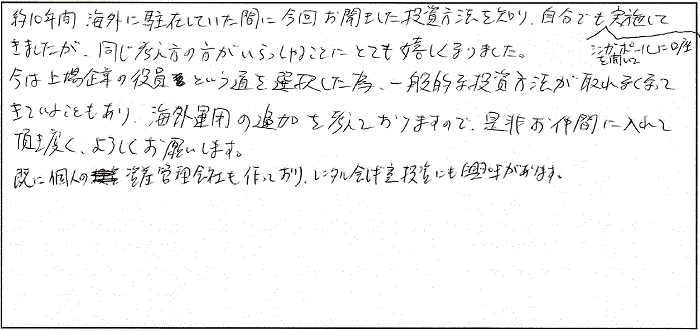 約10年間 海外に駐在していた間に今回お聞きした投資方法を知り、自分でも実施して
シンガポールに口座を開いて
きましたが、同じ考え方の方がいらっしゃることにとても嬉しくなりました。
今は上場企業の役員という道を選択した為、一般的な投資方法が取れなくなって
きていることもあり、海外運用の追加を考えておりますので、是非お仲間に入れて
頂き度く、よろしくお願いします。
既に個人の資産管理会社も作っており、レンタル会ギ室投資にも興味があります。